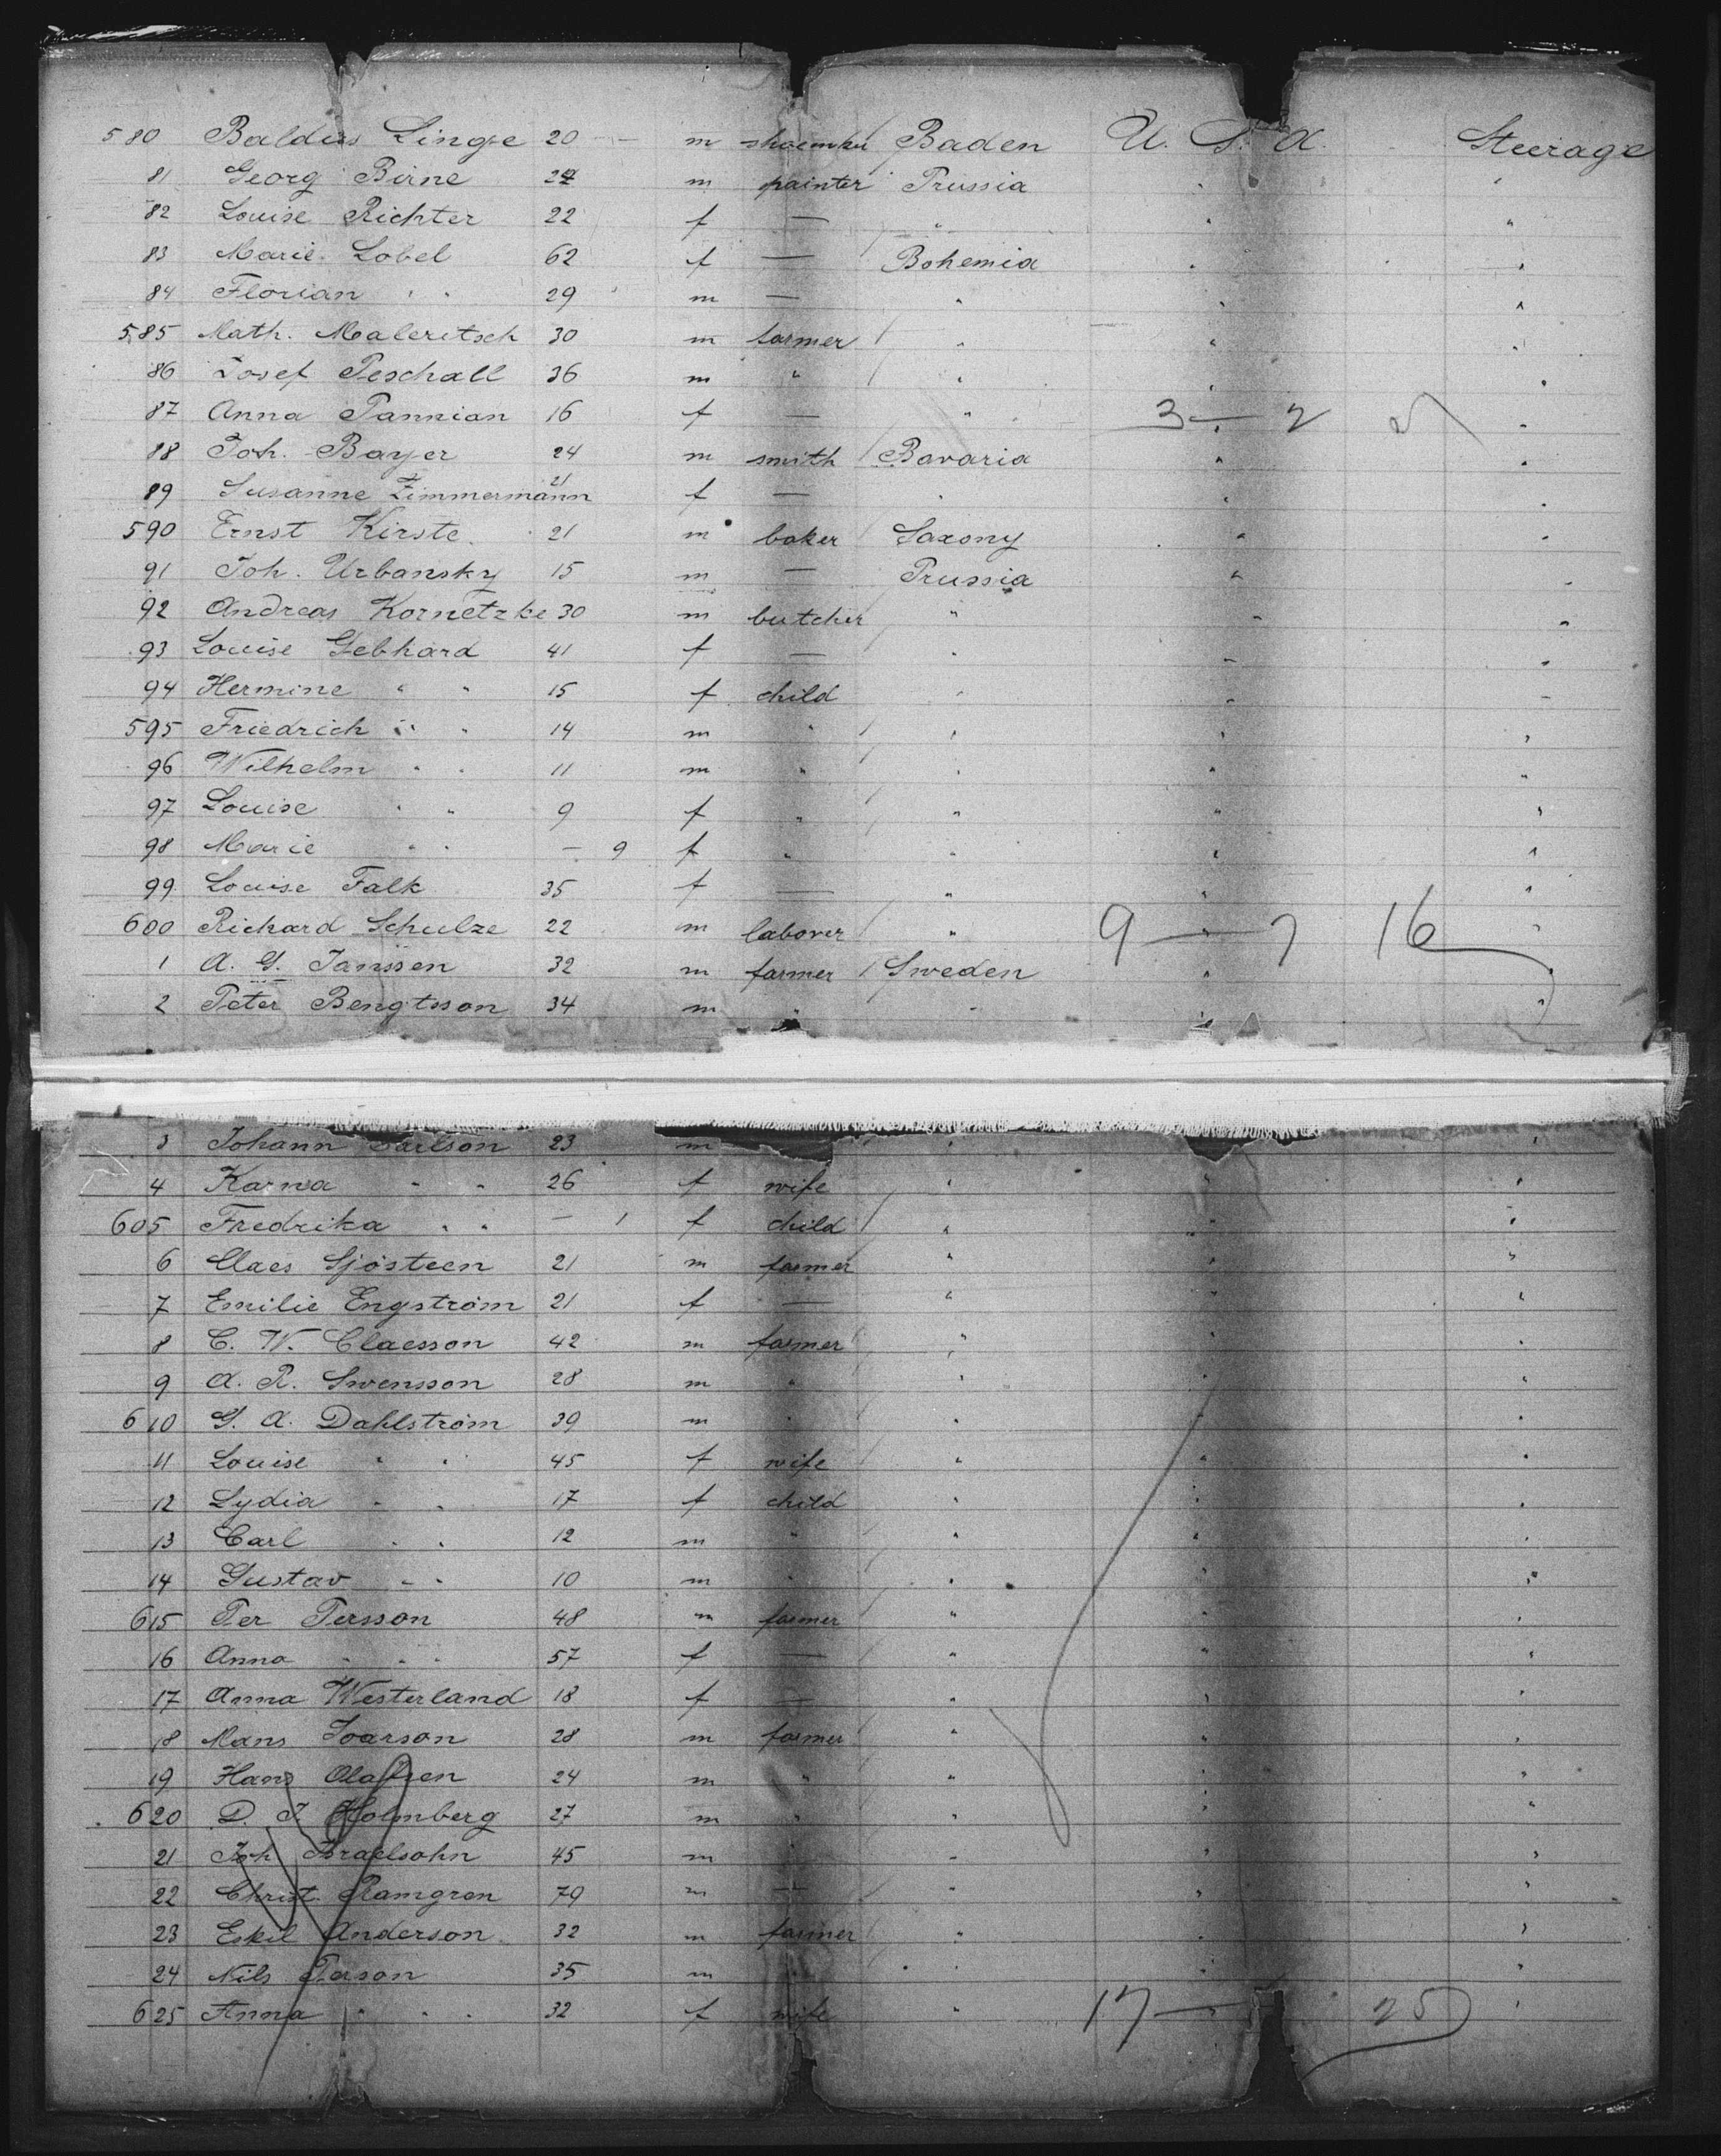 580 Baldus Linge 20 — m shoemker Baden U. S. A. Steerage
81 Georg Birne 24 m painter Prussia " "
82 Louise Richter 22 f — " " "
83 Marie Lobel 62 f — Bohemia " "
84 Florian " " 29 m — " " "
585 Math. Maleritsch 30 m farmer " " "
86 Josef Peschall 36 m " " " "
87 Anna Pannian 16 f — " 3 — 2 "
88 Joh. Bayer 24 m smith Bavaria " "
89 Susanne Zimmermann 21 f — " " "
590 Ernst Kirste 21 m baker Saxony " "
91 Joh. Urbansky 15 m — Prussia " "
92 Andreas Kornetzke 30 m butcher " " "
93 Louise Gebhard 41 f — " " "
94 Hermine " " 15 f child " " "
595 Friedrich " " 14 m " " " "
96 Wilhelm " " 11 m " " " "
97 Louise " " 9 f " " " "
98 Marie " " — 9 f " " " "
99 Louise Falk 35 f — " " "
600 Richard Schulze 22 m laborer " 9 — 7 16 "
1 A. G. Janssen 32 m farmer Sweden " "
2 Peter Bengtsson 34 m " " " "
3 Johann Carlson 23 m " "
4 Karna " " 26 f wife " " "
605 Fredrika " " — 1 f child " " "
6 Claes Sjösteen 21 m farmer " " "
7 Emilie Engström 21 f — " " "
8 C. W. Claesson 42 m farmer " " "
9 A. R. Swensson 28 m " " " "
610 G. A. Dahlström 39 m " " " "
11 Louise " " 45 f wife " " "
12 Lydia " " 17 f child " " "
13 Carl " " 12 m " " " "
14 Gustav " " 10 m " " " "
615 Per Persson 48 m farmer " " "
16 Anna " " 57 f — " " "
17 Anna Westerland 18 f — " " "
18 Mans Ioarson 28 m farmer " " "
19 Hans Olafsen 24 m " " " "
620 D. J. Holmberg 27 m " " " "
21 Joh Israelsohn 45 m " " " "
22 Christ. Ramgren 79 m — " " "
23 Eskil Anderson 32 m farmer " " "
24 Nils Person 35 m " " " "
625 Anna " " 32 f wife " 17 — 25 "